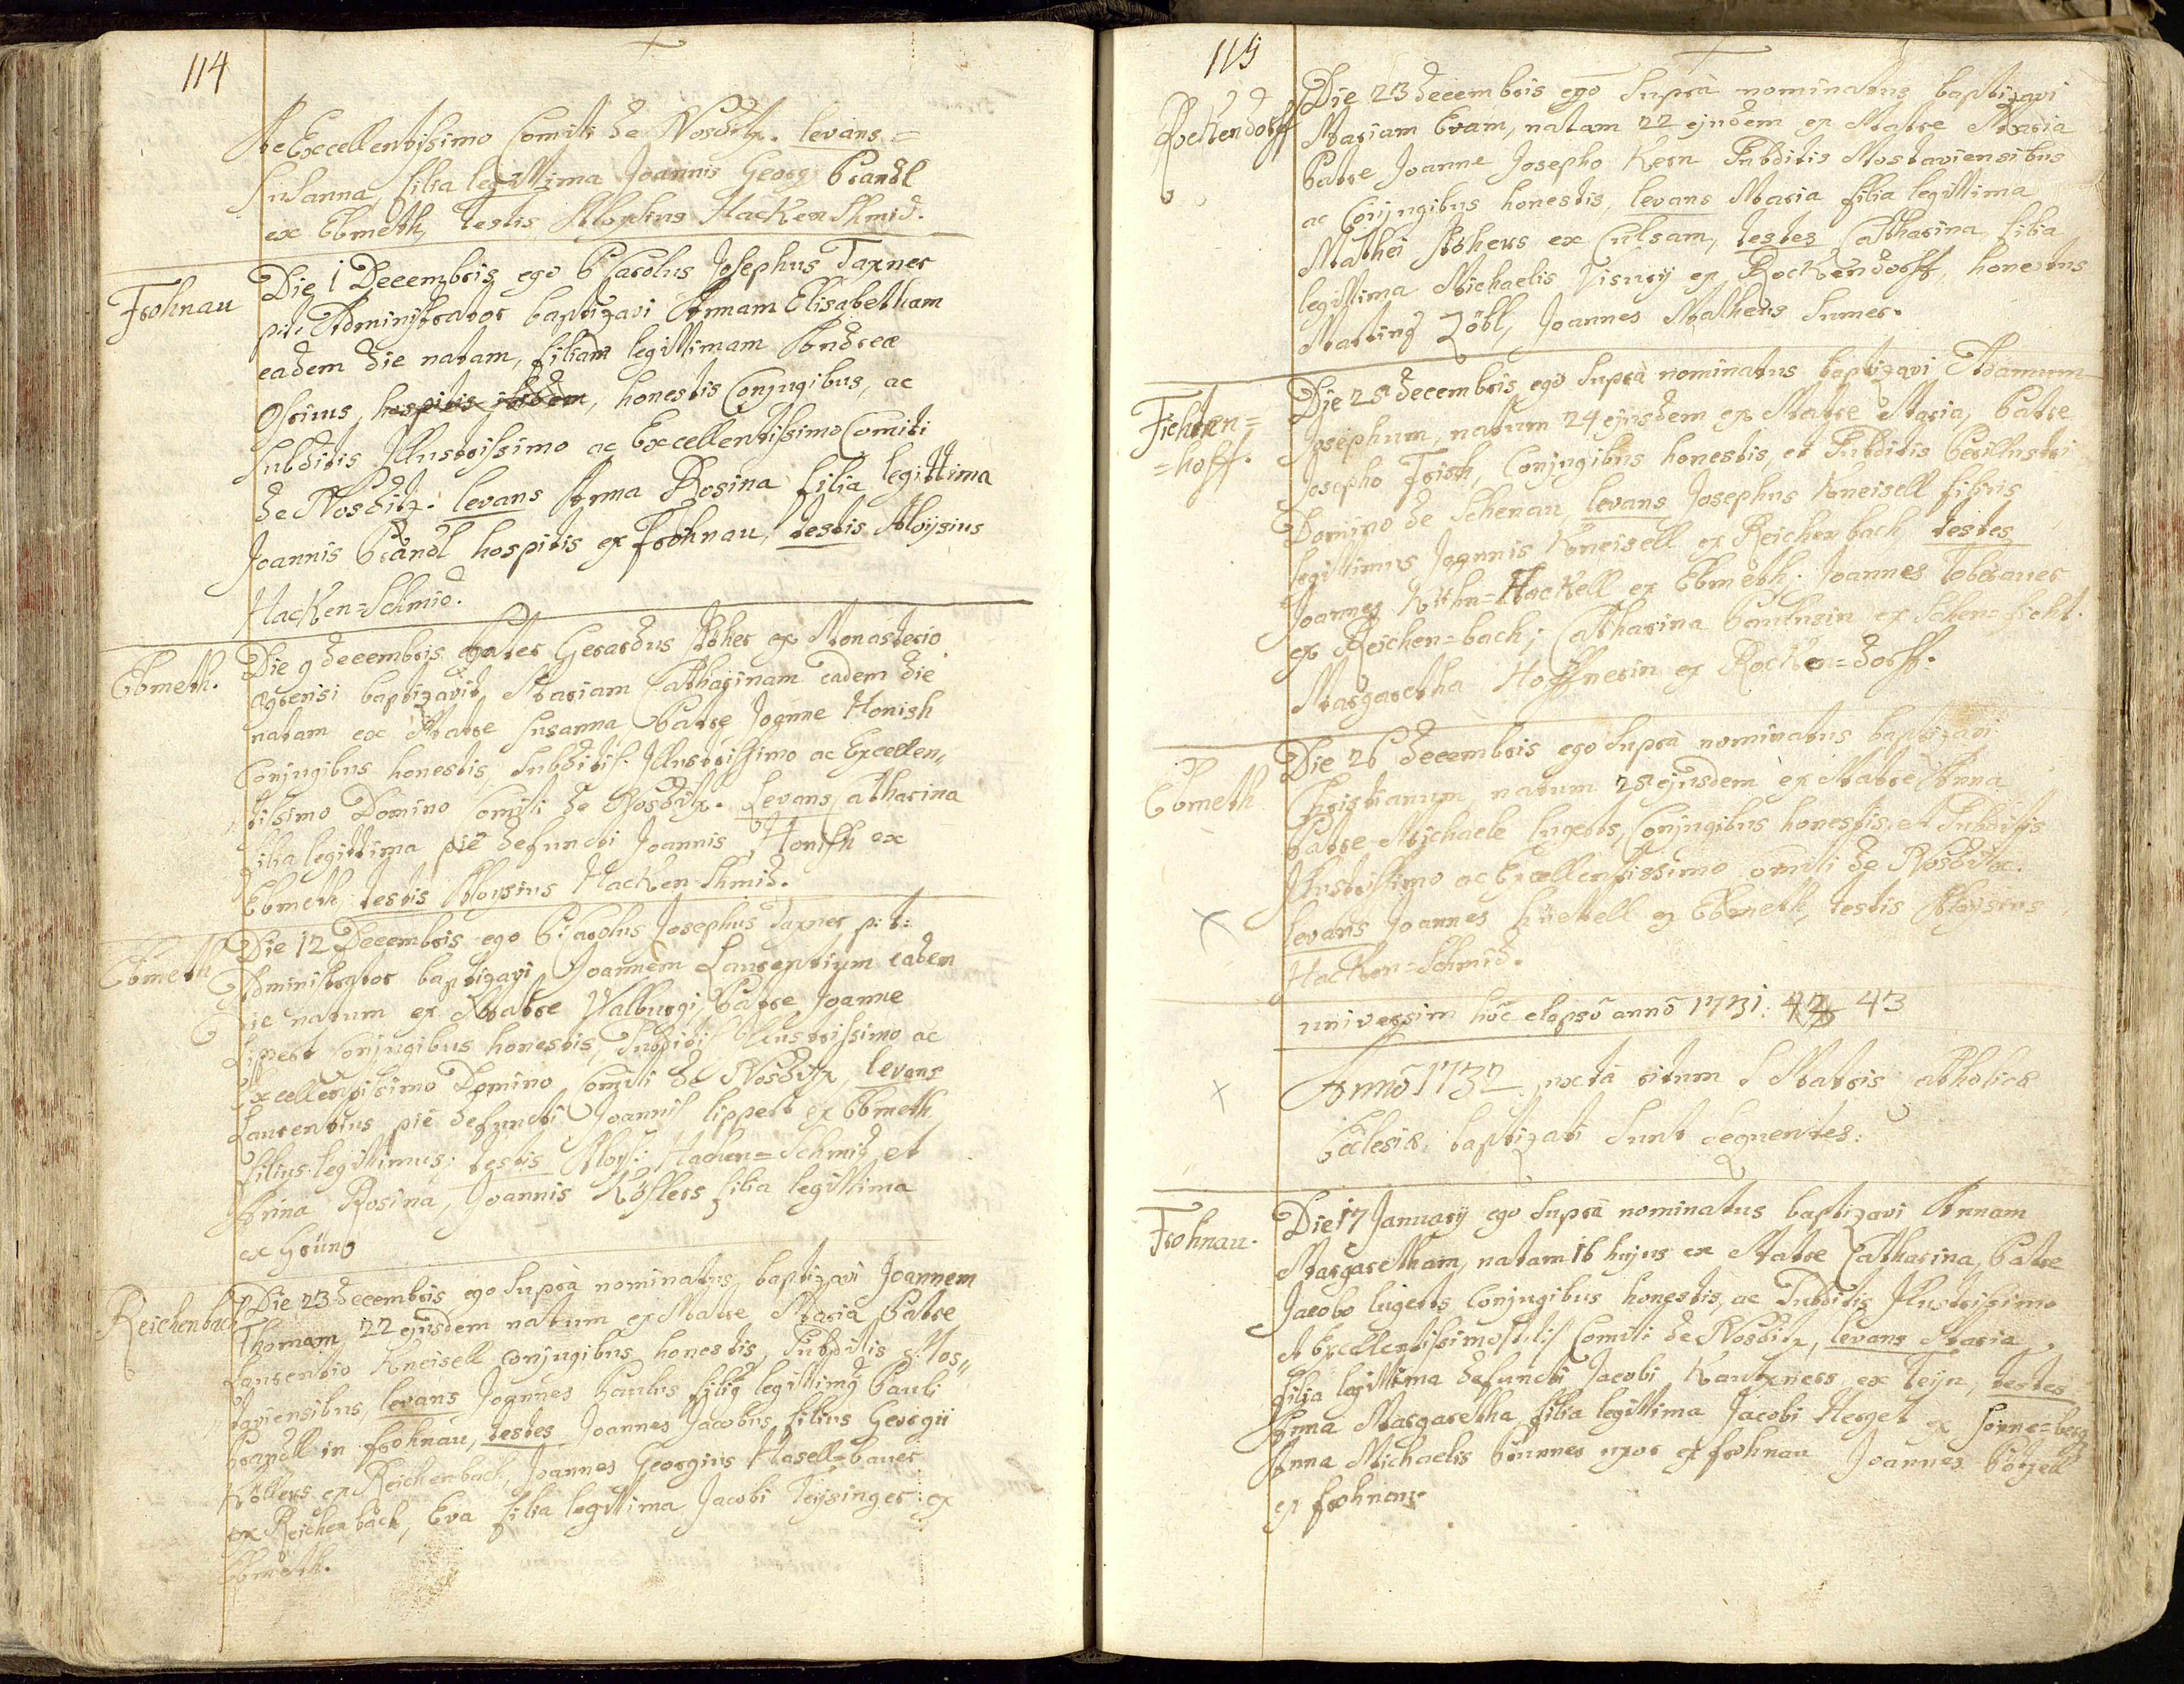 114
Ac Excellentissimo Comiti de Nosditz. levans =
Susanna, filia legittima Joannis Georg Brandl
ex Ebmeth, testis Aloysius Hacken Shmid.
Frohnau
Die 1 Decembris ego P Carolus Josephus Taxner
p:t: Administrator baptizavi Annam Elisabetham
eadem die natam, filiam legittimam Andreæ
hospitis ibidem, honestis Conjugibus, ac
subditis Illustrissimo ac Excellentissimo Comiti
de Nosditz. levans Anna Rosina filia legittima
Joannis Brandl hospitis ex Frohnau, testis Aloijsius
Hacken=Schmid.
Ebmeth.
Die 9 decembris pater Gerardus Stöher ex Monasterio
Egrensi baptizavit Mariam Catharinam eadem die
natam ex Matre Susanna Patre Joanne Honish
Conjugibus honestis, subditis Illustrissimo ac Excellen„
„tissimo Domino Comiti de Nosditz. Levans Catharina
filia legittima piè defuncti Joannis Honish ex
Ebmeth testis Aloysius Hacken Shmid.
Ebmeth
Die 12 Decembris ego P: Carolus Josephus Taxner p: t:
Administrator baptizavi Joannem Laurentium eadem
Die natum ex Matre Walburgi Patre Joanne
Lipert Conjugibus honestis, Subditis Illustrissimo ac
Excellentissimo Domino Comiti de Nosditz, levans
Laurentius piè defuncti Joannis lippert ex Ebmeth
filius legittimus: testis Aloys: Hacken=Schmid et
Anna Rosina, Joannis Köstlers filia legittima
ex Grün
Reichenbach
Die 23 decembris ego Suprà nominatus baptizavi Joannem
Thomam 22 ejusdem natum ex Matre Maria Patre
Laurentio Kneisell Conjugibus honestis, Subditis Mos„
„taviensibus, levans Joannes Paulus filiq legittimq Pauli
Brandll in frohnau, testes Joannes Jacobus, filius Georgii
Köllers ex Reichenbach, Joannes Georgius Hasell=bauer
ex Reichenbach, Eva filia legittima Jacobi Teijsinger: ex
Ebmeth.
115
Rockendorff
Die 23 decembris ego Suprà nominatus baptizavi
Mariam Evam, natam 22 ejusdem ex Matre Maria
Patre Joanne Josepho Kern Subditis Mostaviensibus
ac Conjugibus honestis, levans Maria filia legittima
Mathei Stöhers ex Culsam, testes Catharina filia
legittima Michaelis ex Rockendorff, honestus
Martinq Zöbl, Joannes Matheus Sumer.
Fichten=
=hoff.
Die 25 decembris ego Suprà nominatus baptizavi Adamum
Josephum, natum 24 ejusdem ex Matre Maria, Patre
Josepho Frish, Conjugibus honestis, et Subditis Perillustri
Domino de Schenau, levans Josephus Kneisell filius
legittimus Joannis Kneisell ex Reichenbach testes
Joannes Kühn=Hackell ex Ebmeth. Joannes Toberauer
ex Reichen=bach; Catharina Paulusin ex
Margaretha Hoffnerin ex Rocken=dorff.
Ebmeth
Die 26 decembris ego Suprà nominatus baptizavi
Christianum natum 25 ejusdem ex Matre Anna
Patre Michaele lugerts, Conjugibus honestis, et Subditis
Illustrissimo ac Excellentissimo Comiti de Nosditz.
levans Joannes ex Ebmeth, testis Aloysius
Hacken=Schmid.
universim hôc elapsô annô 1731: 43
Annô 1732 juxtà ritum S Matris Catholicæ
Ecclesiæ baptizati sunt sequentes:
Frohnau.
Die 17 Januarij ego Suprà nominatus baptizavi Annam
Margaretham, natam 16 hujus ex Matre Catharina, Patre
Jacobo lugerts Conjugibus honestis, ac Subditis Illustrissimo
et Excellentissimo Comiti de Nosditz, levans Maria
filia legittima defuncti Jacobi Kautzners ex Teijn, testes
Anna Margaretha filia legittima Jacobi Herget ex Sonne=berg
Anna Michaelis Brunner uxor ex frohnau Joannes Pötzell
ex frohnau.